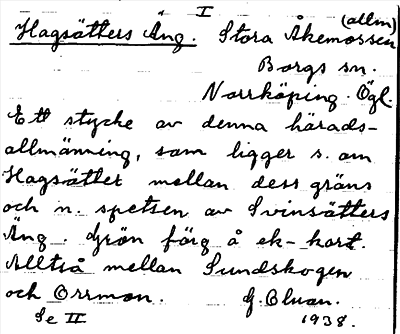 I
Hagsätters Äng. Stora Åkemossen (allm)
Borgs sn.
Norrköping. Ögl.
Ett stycke av denna härads-
allmänning, som ligger s. om
Hagsättet mellan dess gräns
och n. spetsen av Svinsätters
Äng. Grön färg å ek-kart.
Alltså mellan Sundskogen
och Orrmon. G.
Se II 1938.